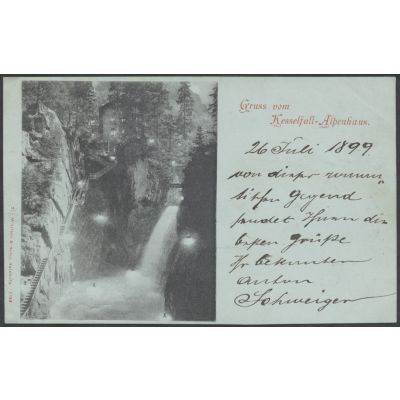 Gruss vom
Kesselfall-Alpenhaus.
26 Juli 1899
von dieser roman„
tischen Gegend
sendet Ihnen die
besten Grüße
Ihr bekannter
Anton
Schweiger